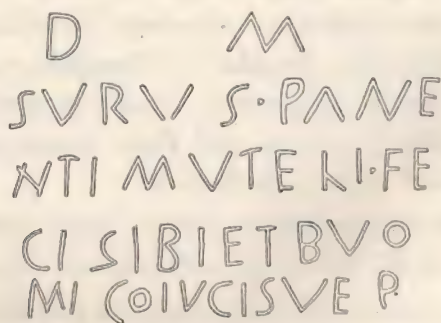 D M
SVRV S·PANE
NTI MVTEKI·FE
CI SIBIET BVO
MI COIVCISVE P.